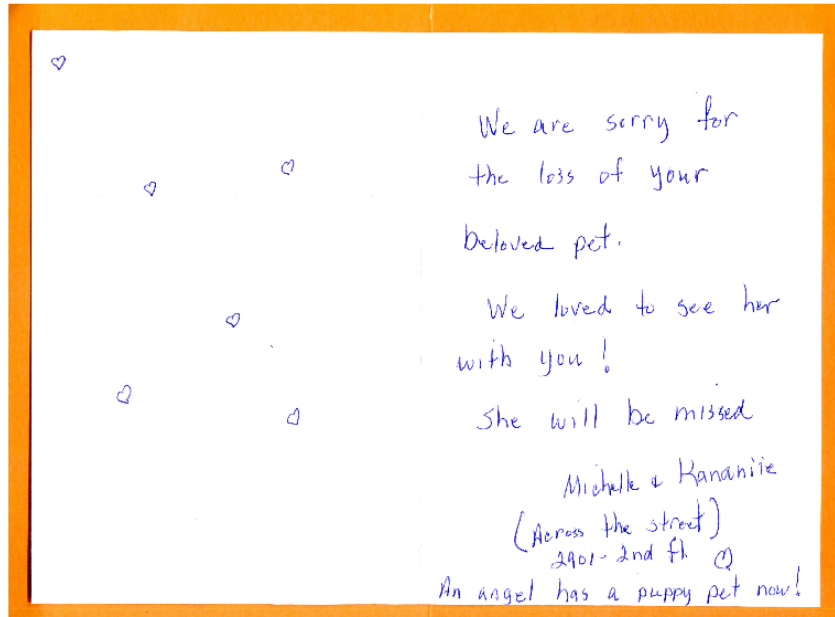 We are sorry for
the loss of your
beloved pet.
We loved to see her
with you!
She will be missed
Michelle & Kananiie
(Across the street)
2901-2nd fl.
An angel has a puppy pet now!